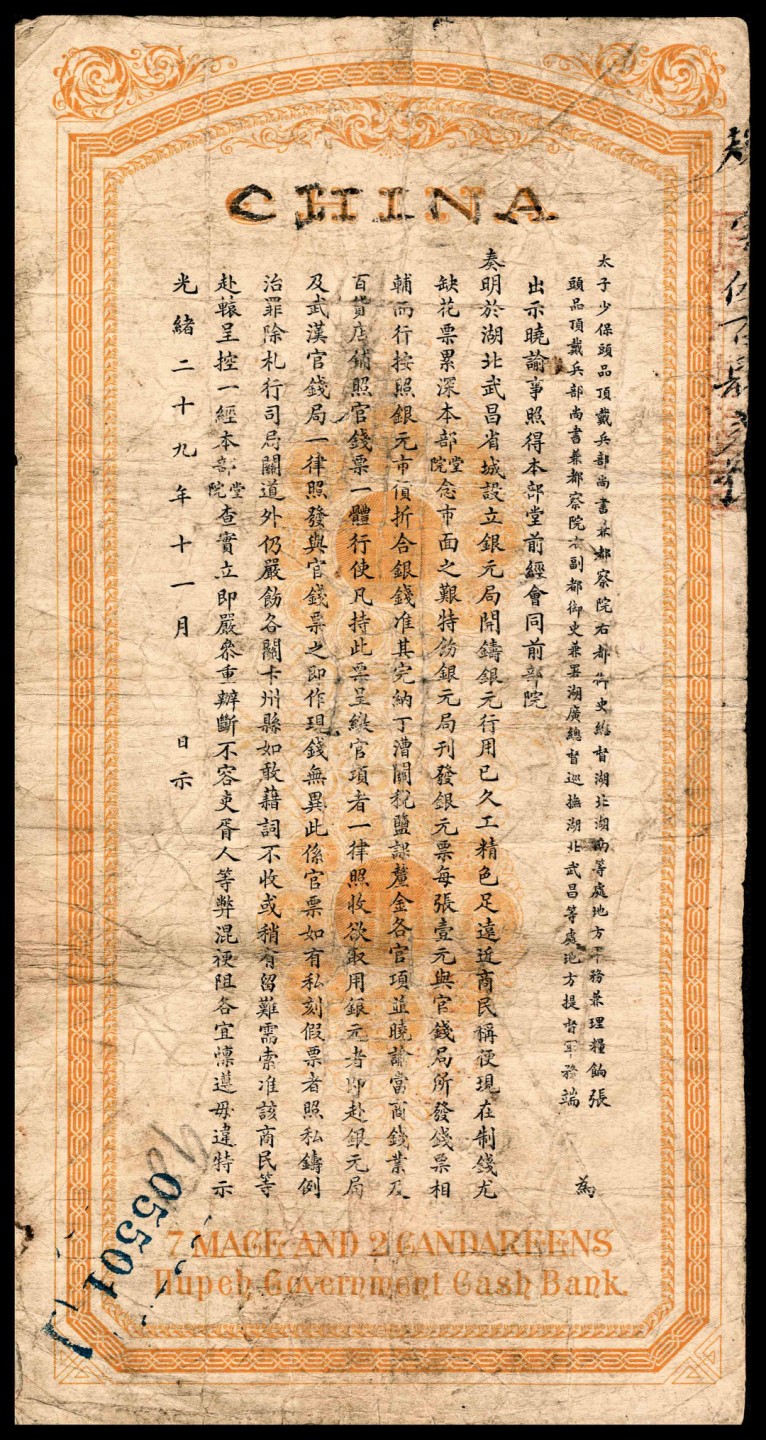 CHINA
太子少保頭品頂戴兵部尚書兼都察院右都御史總督湖北湖南等處地方軍務兼理糧餉張
頭品頂戴兵部尚書兼都察院右副都御史兼署湖廣總督巡撫湖北武昌等處地方提督軍務端 為
出示曉諭事照得本部堂前經會同前部院
奏明於湖北武昌省城設立銀元局開鑄銀元行用已久工精色足遠近商民稱便現在制錢尤
缺花票累深本部堂院念市面之艱特飭銀元局刊發銀元票每張壹元與官錢局所發錢票相
輔而行按照銀元市價折合銀錢准其完納丁漕關稅鹽課釐金各官項並曉諭當商錢業及
百貨店鋪照官錢票一體行使凡持此票呈繳官項者一律照收欲取用銀元者即赴銀元局
及武漢官錢局一律照發與官錢票之即作現錢無異此係官票如有私刻假票者照私鑄例
治罪除札行司局關道外仍嚴飭各關卡州縣如敢藉詞不收或稍有留難需索准該商民等
赴轅呈控一經本部堂院查實立即嚴參重辦斷不容吏胥人等弊混梗阻各宜懍遵毋違特示
光緒二十九年十一月 日示
7 MACE AND 2 CANDAREENS
Hupeh Government Cash Bank.
05501